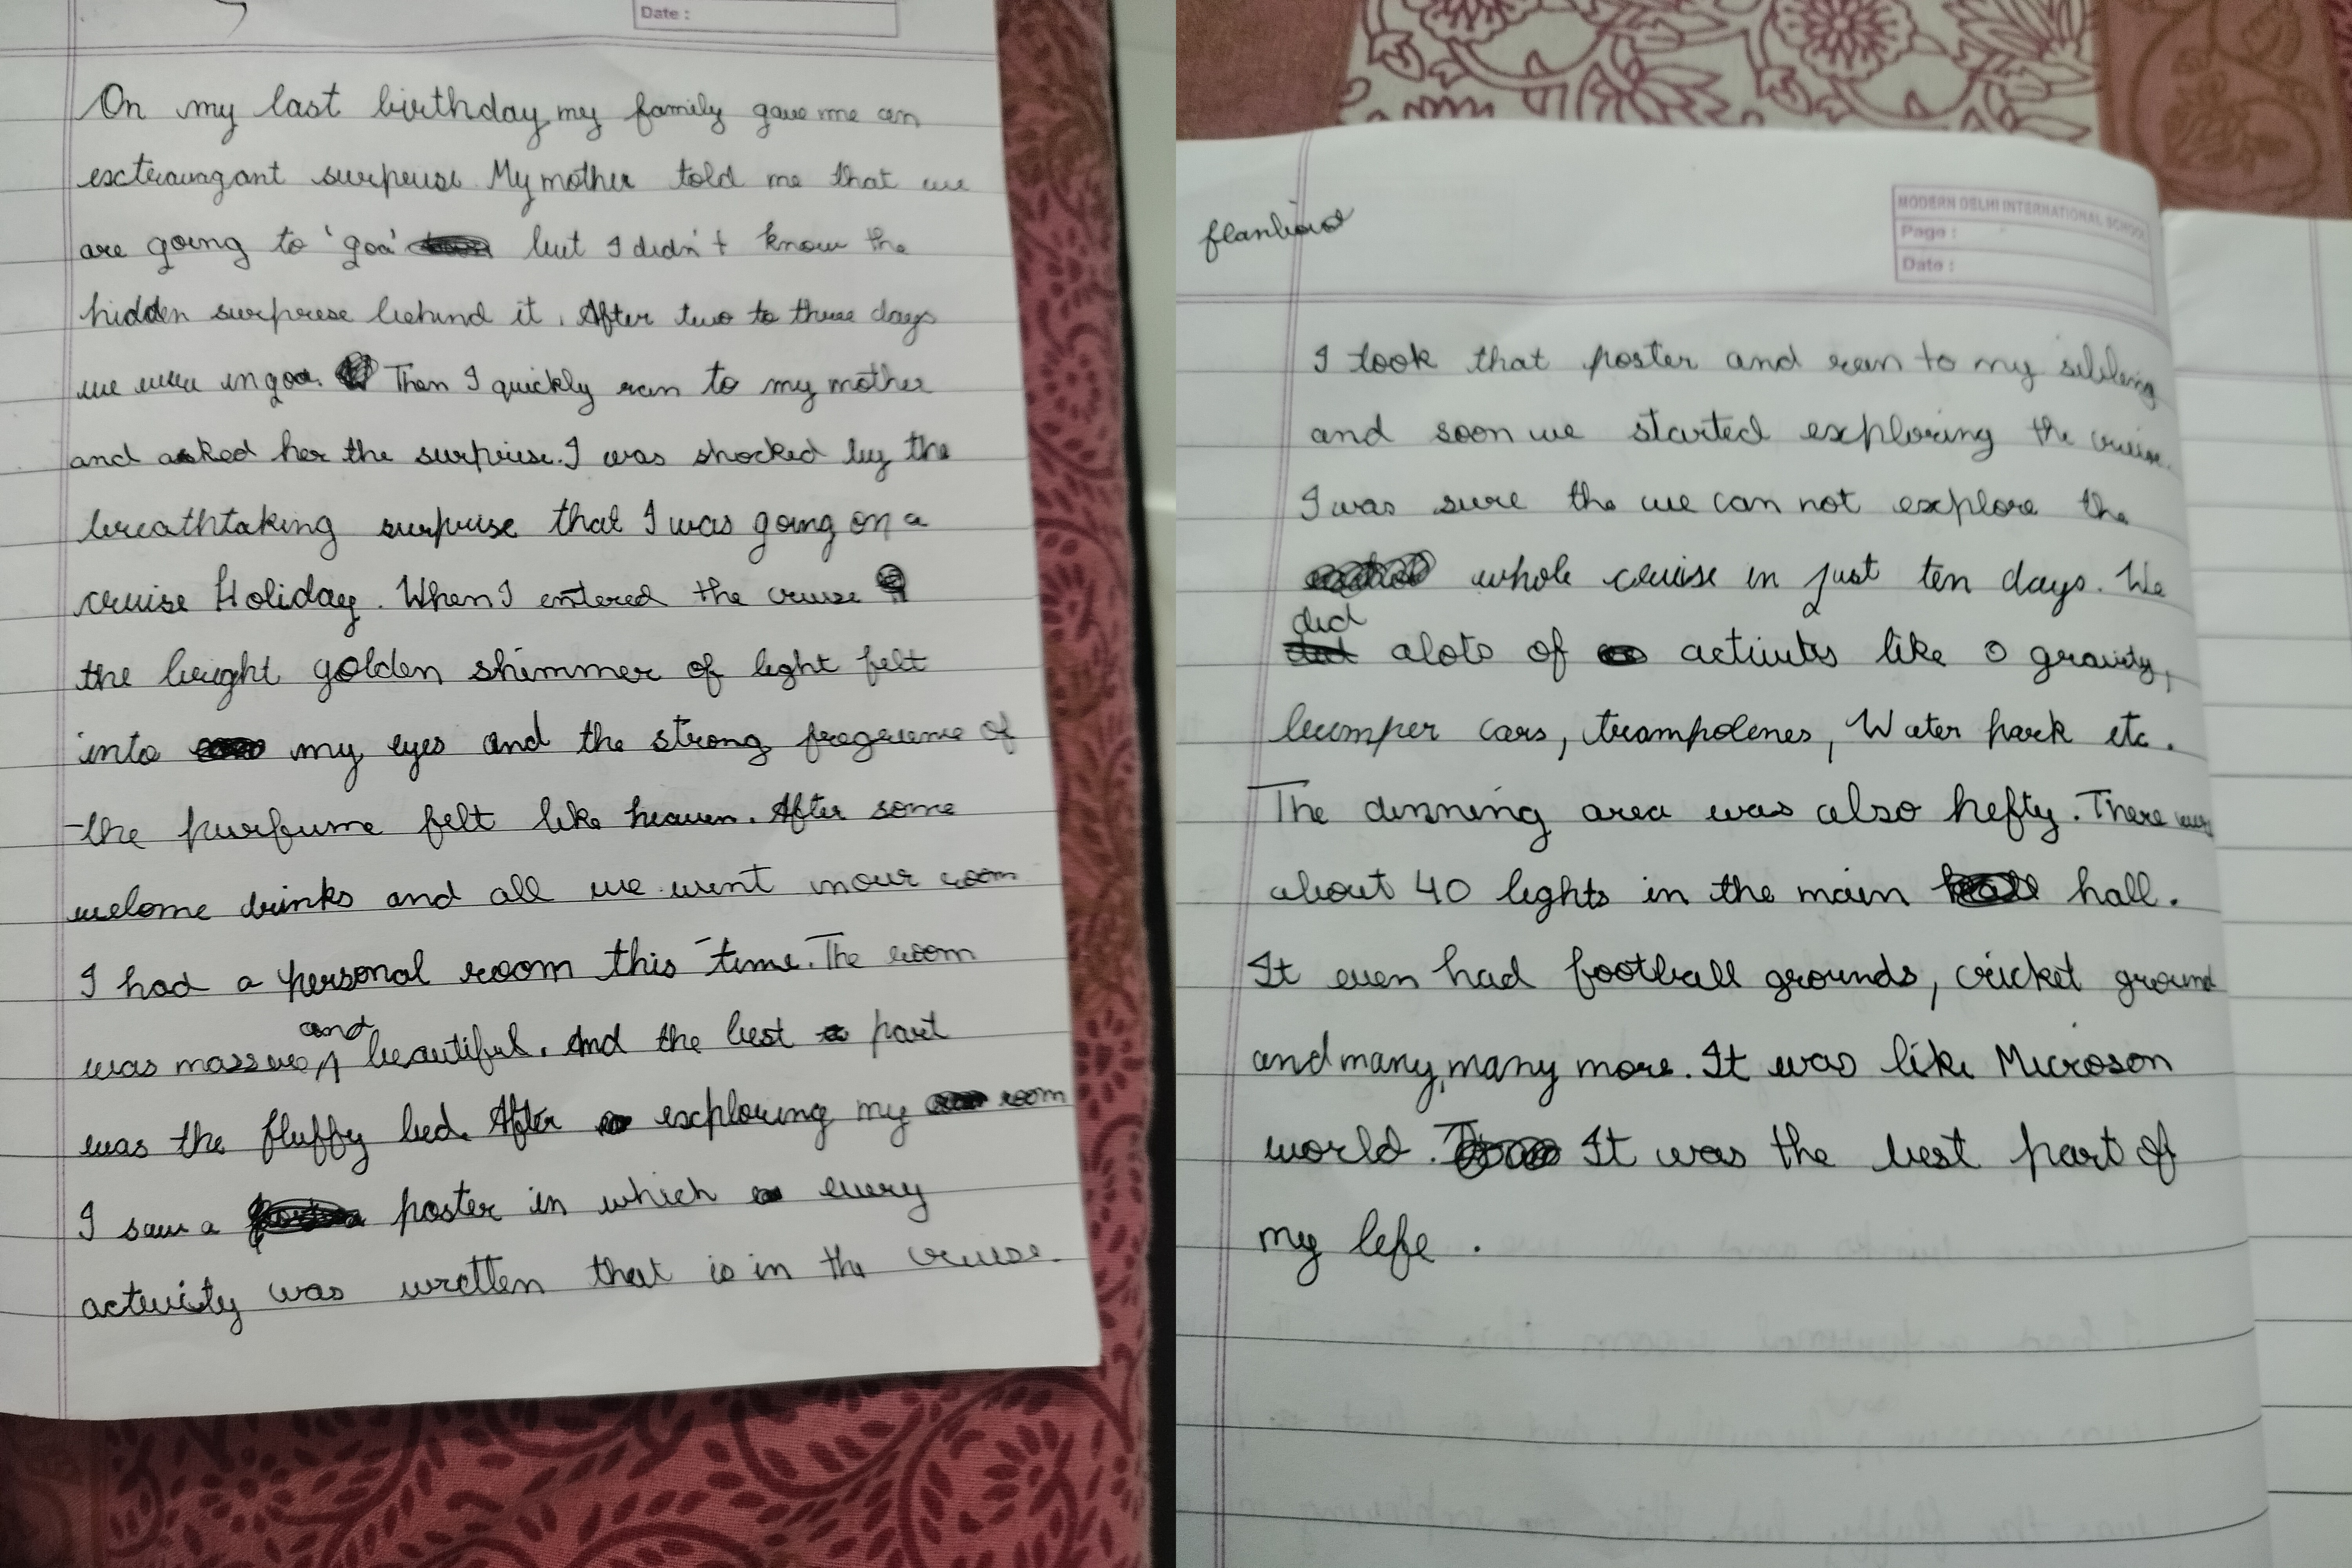 Date :
On my last birthday, my family gave me an
exctravagant surpruse. My mother told me that we
are going to 'goa' but I didn't know the
hidden surprise behind it. After two to three days
we were in goa. Then I quickly ran to my mother
and asked her the surprise. I was shocked by the
breathtaking surprise that I was going on a
cruise Holiday. When I entered the cruise
the bright golden shimmer of light felt
into my eyes and the strong fragrance of
the purfume felt like heaven. After some
welome drinks and all we went in our room
I had a personal room this time. The room
was massive and beautiful. And the best part
was the fluffy bed. After exploring my room
I saw a poster in which every
activity was wretten that is in the cruise.
MODERN DELHI INTERNATIONAL SCHOOL
Page :
Date :
I took that poster and ran to my sibling
and soon we started exploring the cruise.
I was sure the we can not explore the
whole cruise in just ten days. We
did alots of activites like 0 gravity,
bumper cars, trampolenes, Water park etc.
The dinning area was also hefty. There were
about 40 lights in the main hall.
It even had football grounds, cricket ground
and many, many more. It was like Microson
world. It was the best part of
my life .